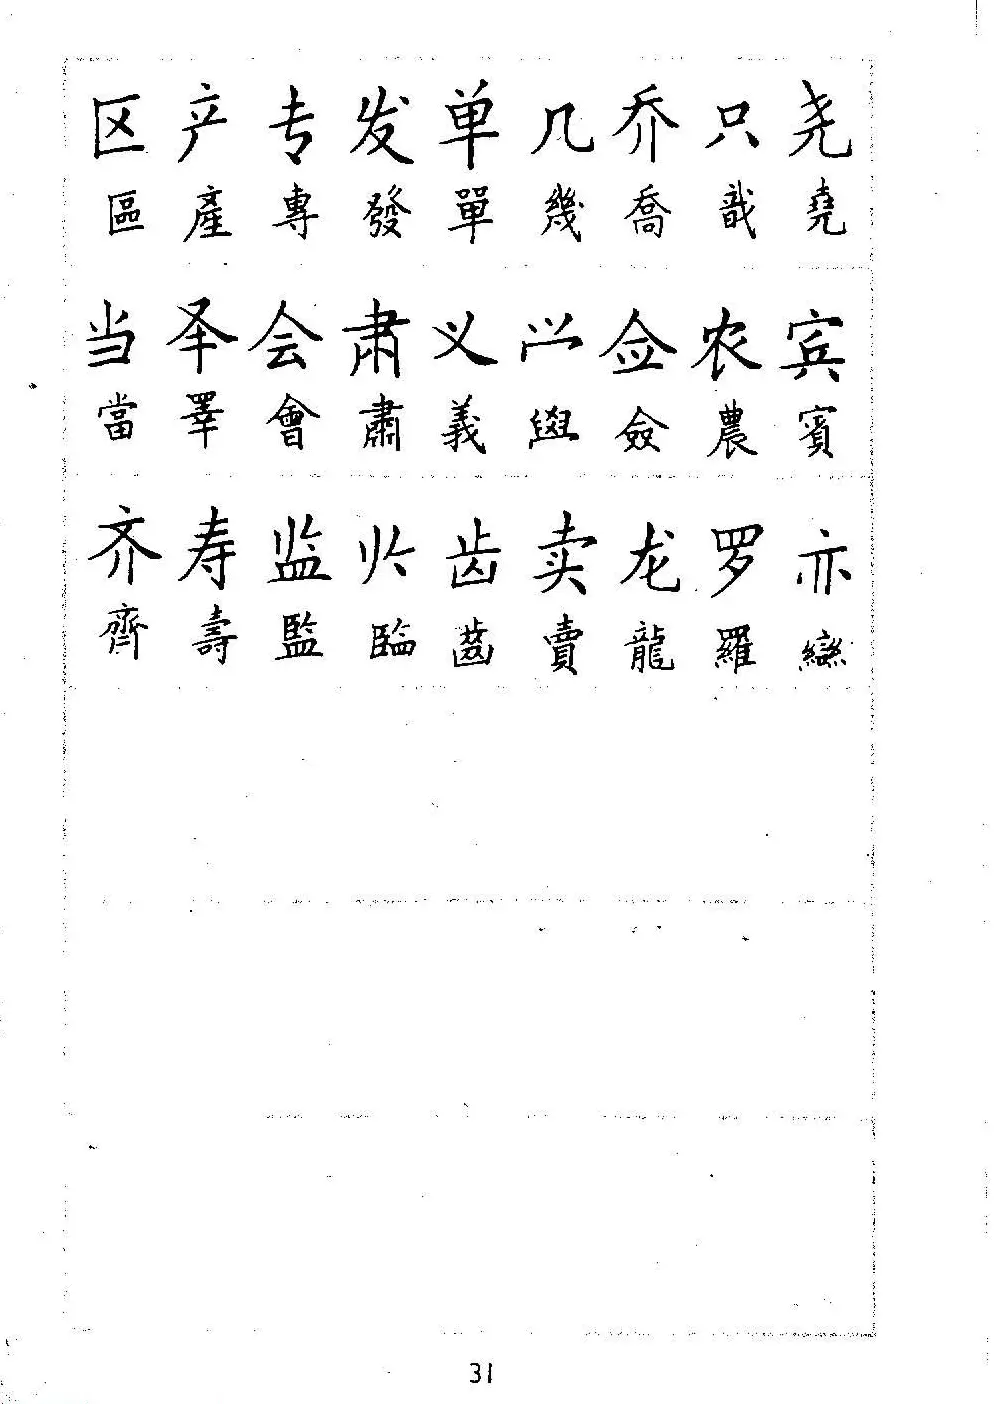 区 产 专 发 单 几 乔 只 尧
區 產 專 發 單 幾 喬 戠 堯
当 圣 会 肃 义 𰃮 佥 农 宾
當 睪 會 肅 義 㒸 僉 農 賓
齐 寿 监 齿 卖 龙 罗 亦
齊 壽 監 臨 齒 賣 龍 羅 䜌
31